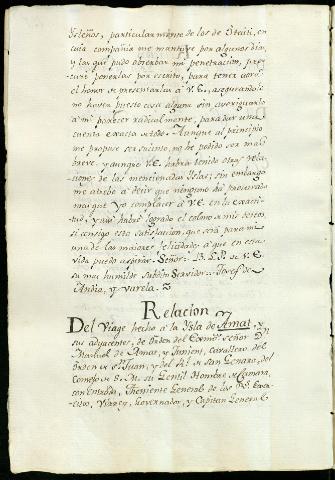 Ysleños, particularmente de los de Otaiti, en
cuia compañia me mantuve por algunos dias,
y los que pudo observar mi penetracion, pro-
curé ponerlas por escrito, para tener aora
el honor de presentarlas à V. E., asegurando
no haver puesto cosa alguna sin averiguarla
à mi parecer radicalmente, para dar una
cuenta exacta de todo. Aunque al principio
me propuse ser sucinto, no he podido ser mas
breve. y aunque V. E. habrà tenido otras rela-
ciones de las mencionadas Yslas; sin embargo
me atrebo à decir que ninguno hà procurado
mas que yo complacer à V. E. en la exacti-
tud, y avrè logrado el colmo à mis deseos
si consigo esta satisfacion, que serà para mi
una de las maiores felicidades à que en esta
vida puedo aspirar. Señor: B. L. P. de V. E.
su mas humilde Subdito Servidor: Josef de
Andia, y Varela.
Relacion
Del Viage hecho à la Ysla de Amat, y
sus adyacentes, de Orden del Exmo. señor Dn.
Manuel de Amat, y Junient, Cavallero del
Orden de Sn. Juan, y del Rl. de San Genaro, del
Consejo de S. M. su Gentil Hombre de Camara,
con Entrada, Theniente General de los Rs. Exer-
citos, Virrey, Governador, y Capitan General